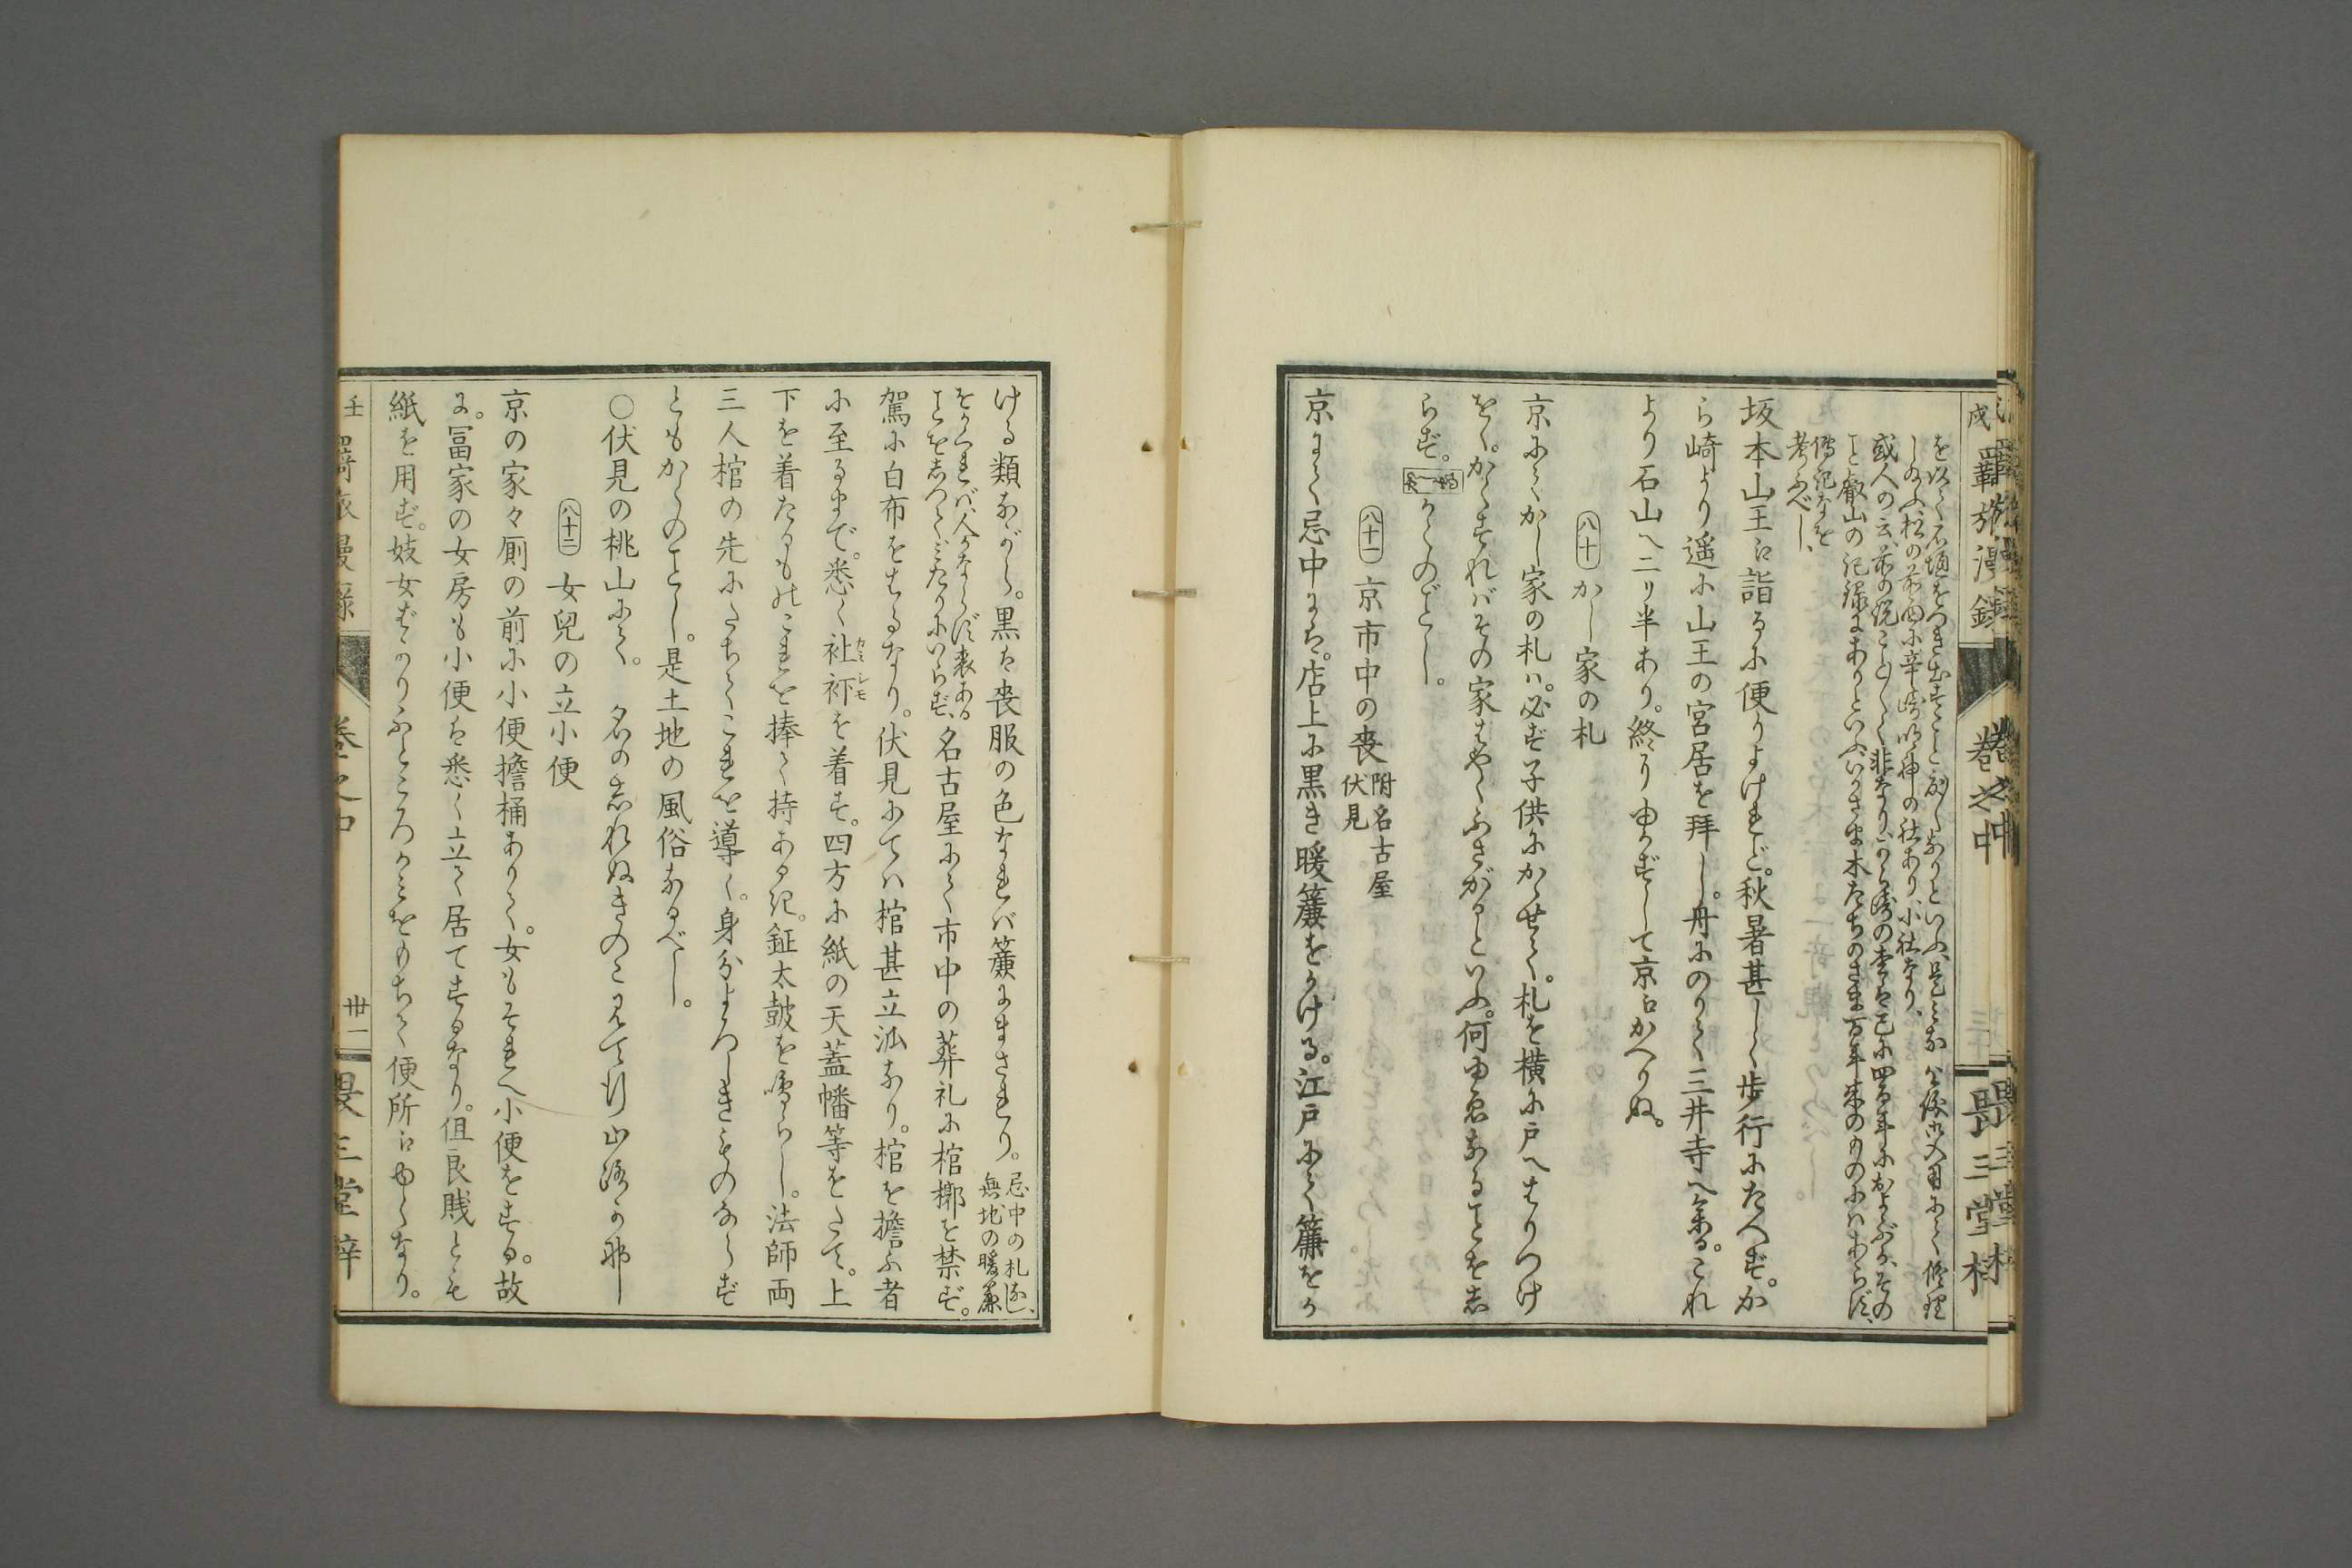 戌
羇旅漫録
巻之中
畏三堂梓
を以て石垣をつき出すこと剏しなりといふ、是らみな公儀御入用にて修理
しぬふ松の前面に辛崎明神の社あり、小社なり、
或人の云、前の説こと〴〵く非なり、から崎の松は已に四百年におよぶが、その
こと叡山の記録にありといふ、いかさま木だちのさま百年来のものにハあらず、
傳記などを
考ふべし、
坂本山王に詣るに便りよけれど。秋暑甚しく歩行にたへず。か
ら崎より遥に山王の宮居を拝し。舟にのりて三井寺へ参る。これ
より石山へ二リ半あり。終りゆかずして京にかへりぬ。
八十 かし家の札
京にてかし家の札ハ。必ず子供にかゝせて。札を横に戸へはりつけ
をく。かくすればその家はやくふさがるといふ。何ゆゑなることをし
らず。かくのごとし。
八十一 京市中の喪 附名古屋伏見
京にて忌中にハ。店上に黒き暖簾をかける。江戸にて簾をか
ける類ながら。黒は喪服の色なれバ簾にまされり。忌中の札なし、無地の暖簾
をかくれバ、人かならず喪ある
ことをしつて、みだりにいらず、名古屋にて市中の葬礼に棺槨を禁ず。
駕に白布をはるなり。伏見にてハ棺甚立派なり。棺を擔ふ者
に至るまで。悉く𧘕𧘔を着す。四方に紙の天蓋幡等をたて。上
カミシモ
下を着たるものこれを捧て持あるき。鉦太鼓を鳴らし。法師両
三人棺の先にたちてこれを導く。身分よろしきものならず
ともかくのことし。是土地の風俗なるべし。
○伏見の桃山にて。 名のしれぬきのこ見て行山路かな
八十二 女兒の立小便
京の家々厠の前に小便擔桶ありて。女もそれへ小便をする。故
に。冨家の女房も小便は悉く立て居てするなり。但良賤とも
紙を用ず。妓女ばかりふところがみをもちて便所にゆくなり。
壬
羇旅漫録
巻之中
卅一
畏三堂梓